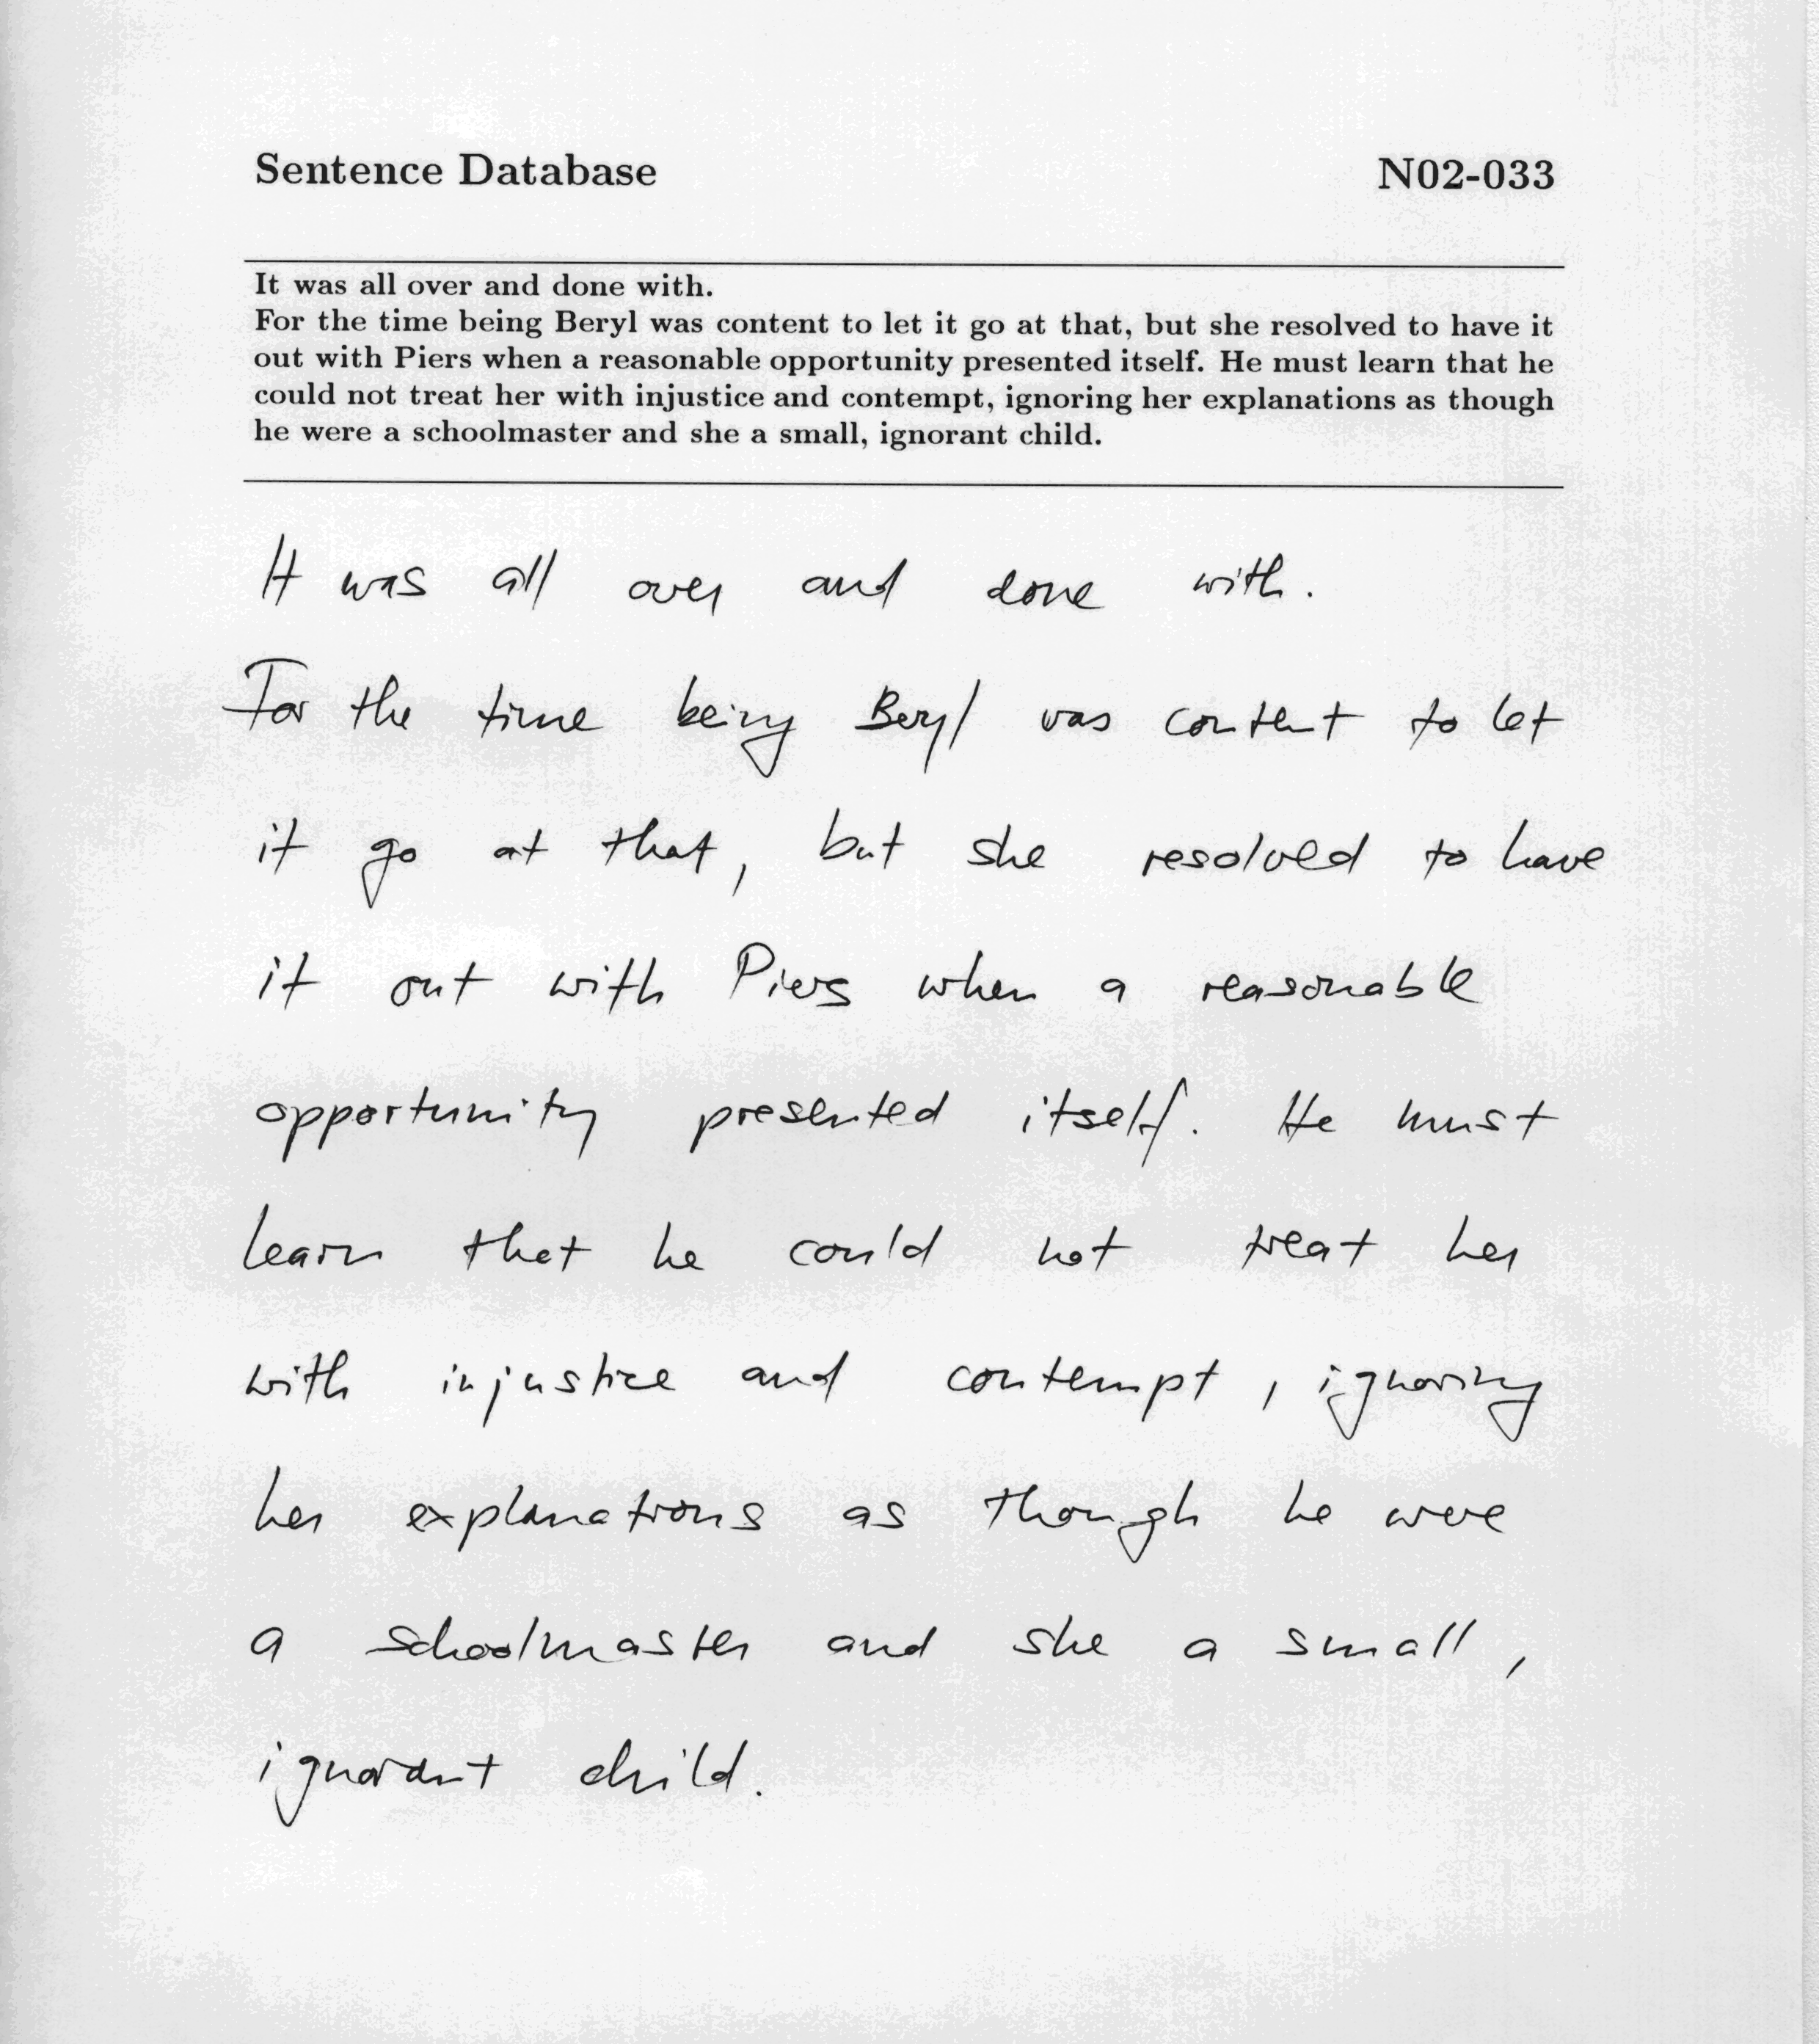 Sentence Database N02-033
It was all over and done with.
For the time being Beryl was content to let it go at that, but she resolved to have it
out with Piers when a reasonable opportunity presented itself. He must learn that he
could not treat her with injustice and contempt, ignoring her explanations as though
he were a schoolmaster and she a small, ignorant child.
It was all over and done with.
For the time being Beryl was content to let
it go at that, but she resolved to have
it out with Piers when a reasonable
opportunity presented itself. He must
learn that he could not treat her
with injustice and contempt, ignoring
her explanations as though he were
a schoolmaster and she a small,
ignorant child.